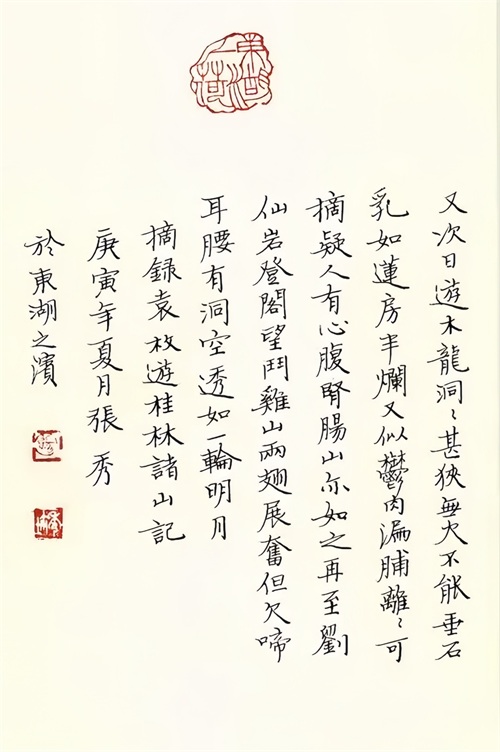 又次日遊木龍洞〻甚狹無火不能垂石
乳如蓮房半爛又似鬱肉漏脯離〻可
摘疑人有心腹腎腸山亦如之再至劉
仙岩登閣望鬥雞山兩翅展奮但欠啼
耳腰有洞空透如一輪明月
摘録袁枚遊桂林諸山記
庚寅年夏月張秀
於東湖之濱